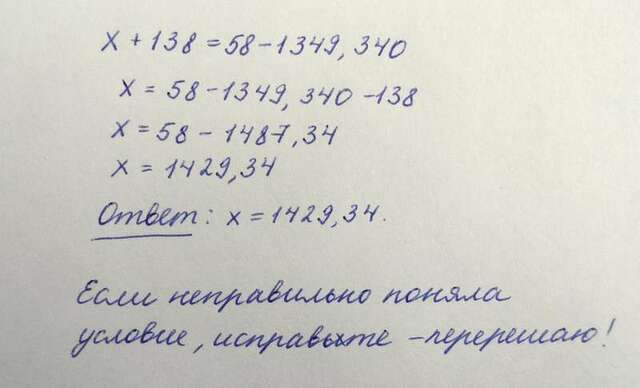 x + 138 = 58 - 1349, 340
x = 58 - 1349, 340 - 138
x = 58 - 1487, 34
x = 1429, 34
Ответ: x = 1429, 34.
Если неправильно поняла
условие, исправьте - перерешаю!